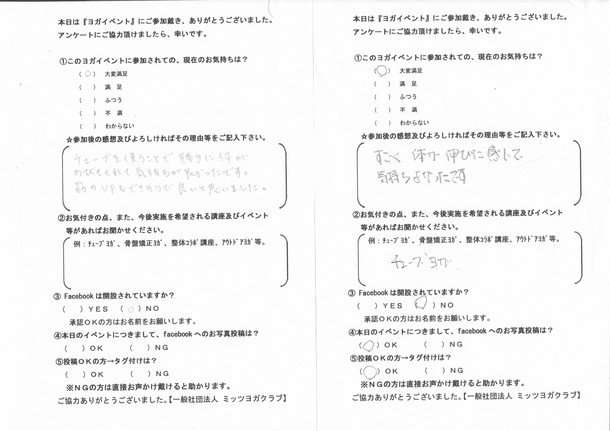 本日は『ヨガイベント』にご参加戴き、ありがとうございました。
アンケートにご協力頂けましたら、幸いです。
①このヨガイベントに参加されての、現在のお気持ちは？
(○) 大変満足
( ) 満 足
( ) ふつう
( ) 不 満
( ) わからない
☆参加後の感想及びよろしければその理由等をご記入下さい。
チューブを使うことで 勝手に体が
のびてくれて 気持ちが良かったです。
筋力UPもできそうで 良いと思いました。
②お気付きの点、また、今後実施を希望される講座及びイベント
等があればお聞かせください。
例：ﾁｭｰﾌﾞﾖｶﾞ、骨盤矯正ﾖｶﾞ、整体ｺﾗﾎﾞ講座、ｱｳﾄﾄﾞｱﾖｶﾞ等。
③ Facebookは開設されていますか？
( ) YES (○) NO
承認OKの方はお名前をお願いします。
④本日のイベントにつきまして、facebookへのお写真投稿は？
( ) OK ( ) NG
⑤投稿OKの方→タグ付けは？
( ) OK ( ) NG
※NGの方は直接お声かけ戴けると助かります。
ご協力ありがとうございました。【一般社団法人 ミッツヨガクラブ】
本日は『ヨガイベント』にご参加戴き、ありがとうございました。
アンケートにご協力頂けましたら、幸いです。
①このヨガイベントに参加されての、現在のお気持ちは？
(○) 大変満足
( ) 満 足
( ) ふつう
( ) 不 満
( ) わからない
☆参加後の感想及びよろしければその理由等をご記入下さい。
すごく 体が 伸びた 感じで
気持ちよかったです
②お気付きの点、また、今後実施を希望される講座及びイベント
等があればお聞かせください。
例：ﾁｭｰﾌﾞﾖｶﾞ、骨盤矯正ﾖｶﾞ、整体ｺﾗﾎﾞ講座、ｱｳﾄﾄﾞｱﾖｶﾞ等。
チューブヨガ
③ Facebookは開設されていますか？
( ) YES (○) NO
承認OKの方はお名前をお願いします。
④本日のイベントにつきまして、facebookへのお写真投稿は？
(○) OK ( ) NG
⑤投稿OKの方→タグ付けは？
(○) OK ( ) NG
※NGの方は直接お声かけ戴けると助かります。
ご協力ありがとうございました。【一般社団法人 ミッツヨガクラブ】